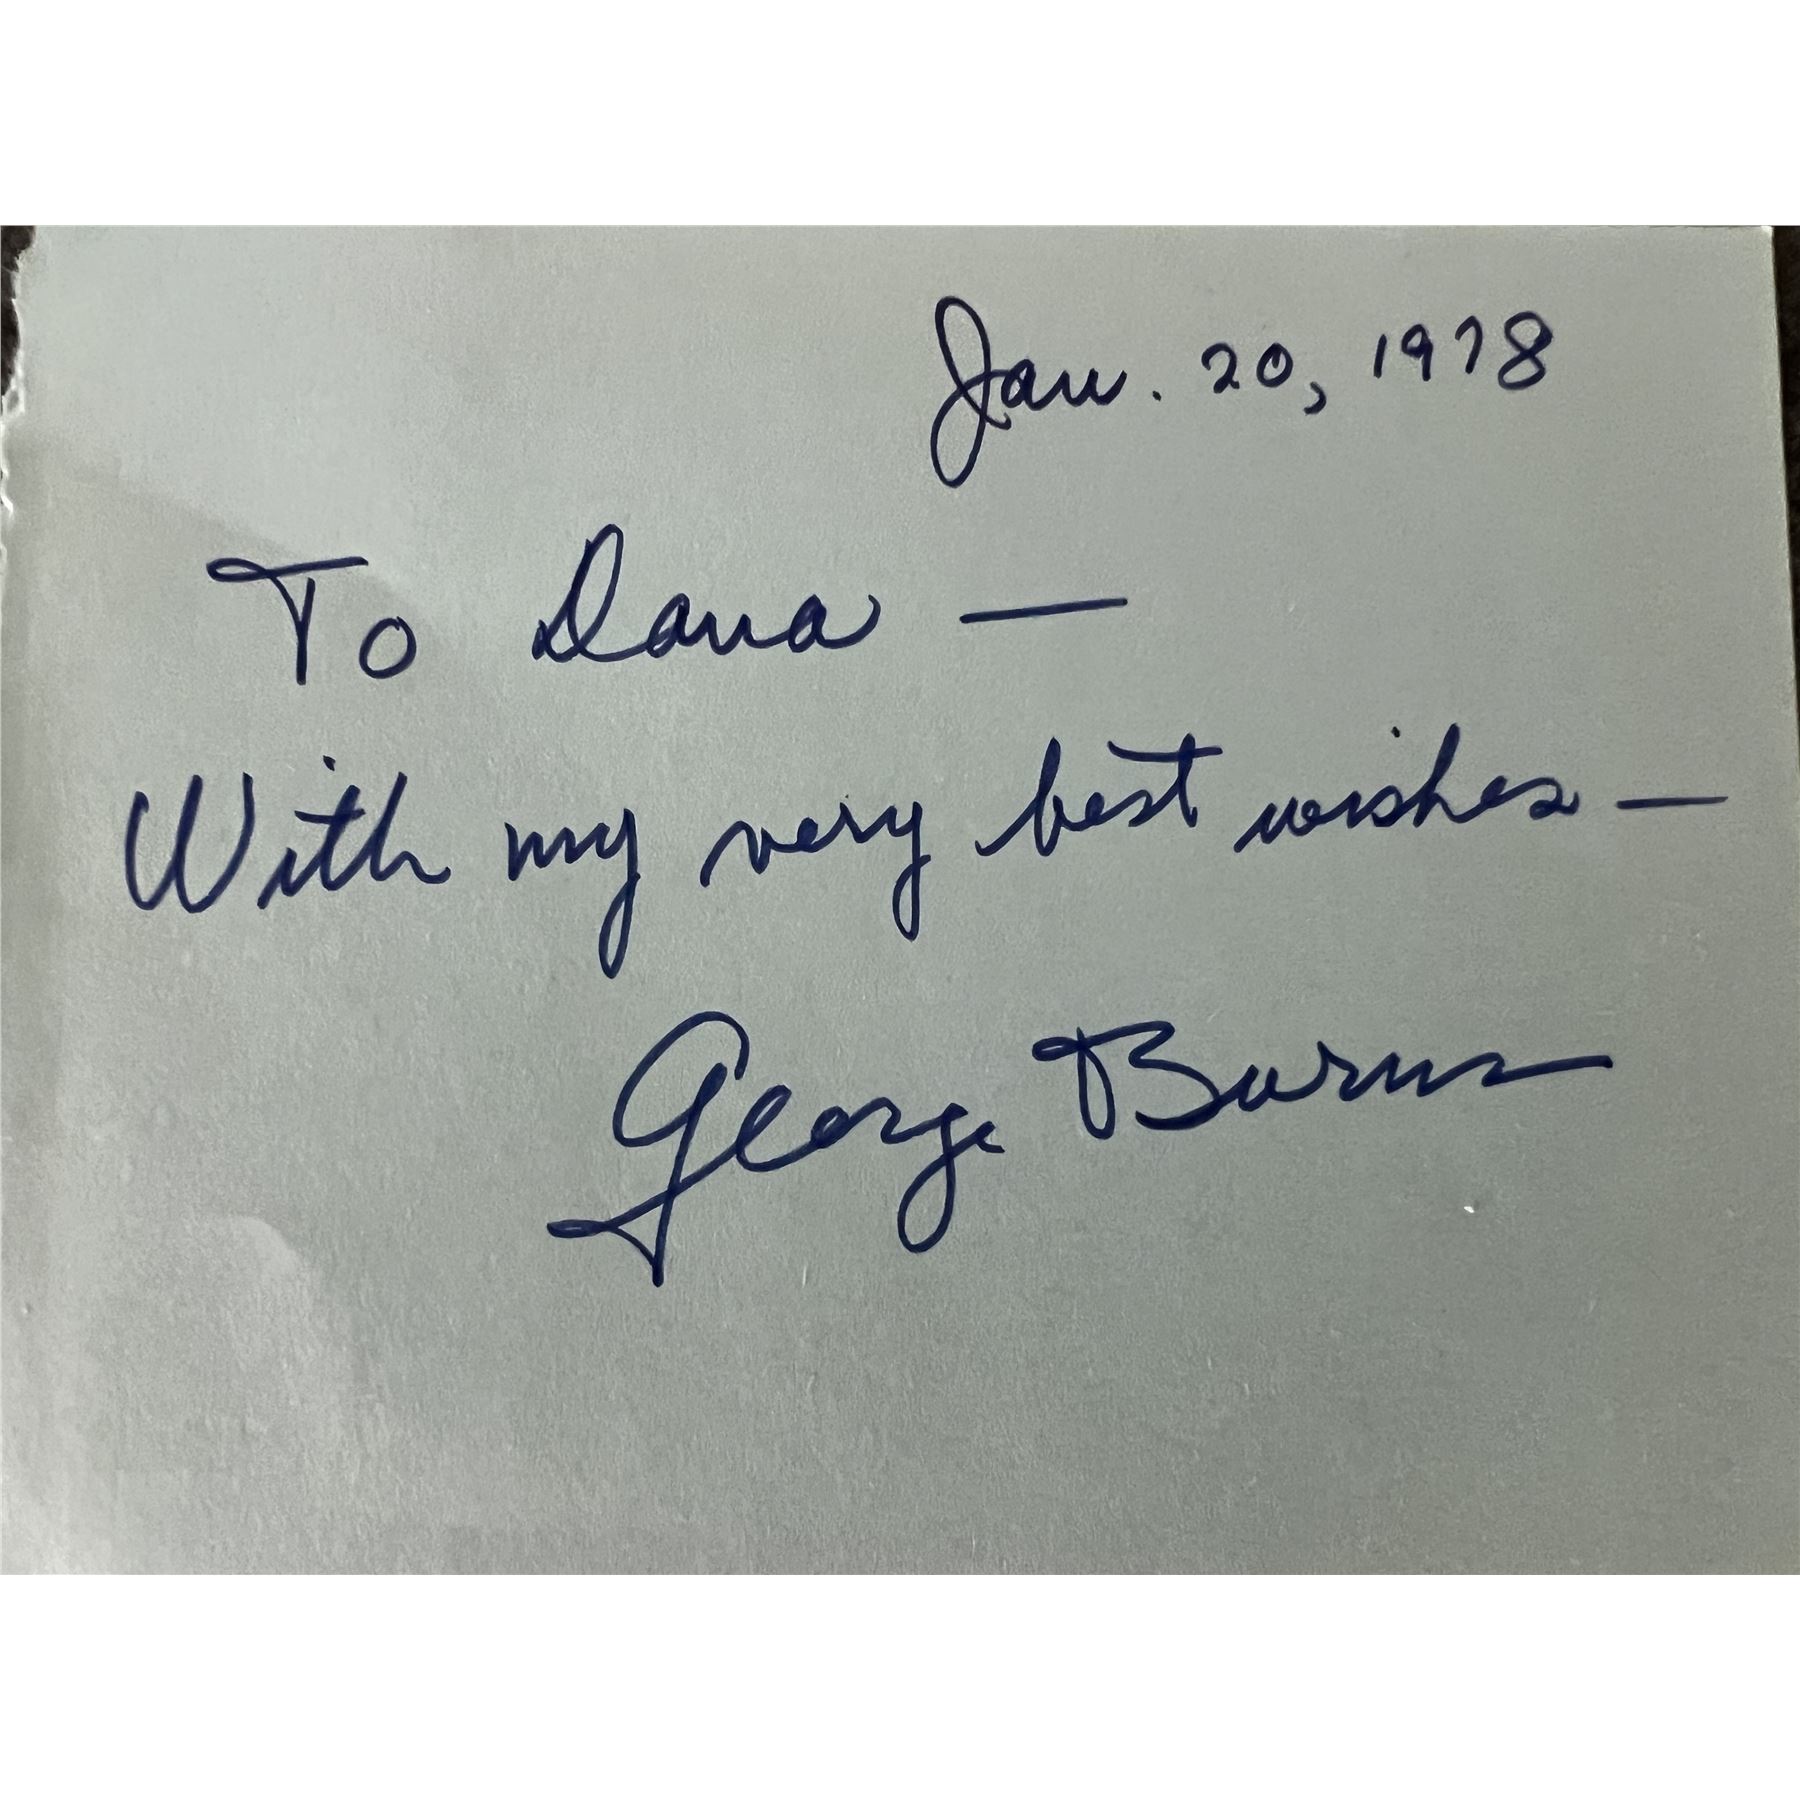 Jan. 20, 1978
To Dana —
With my very best wishes —
George Burns